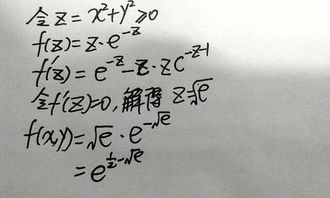 令z=x²+y²≥0
f(z)=z·e^{-z}
f'(z)=e^{-z}-z·zc^{-z-1}
令f'(z)=0,解得 z=√e
f(xy)=√e·e^{-√e}
=e^{½-√e}